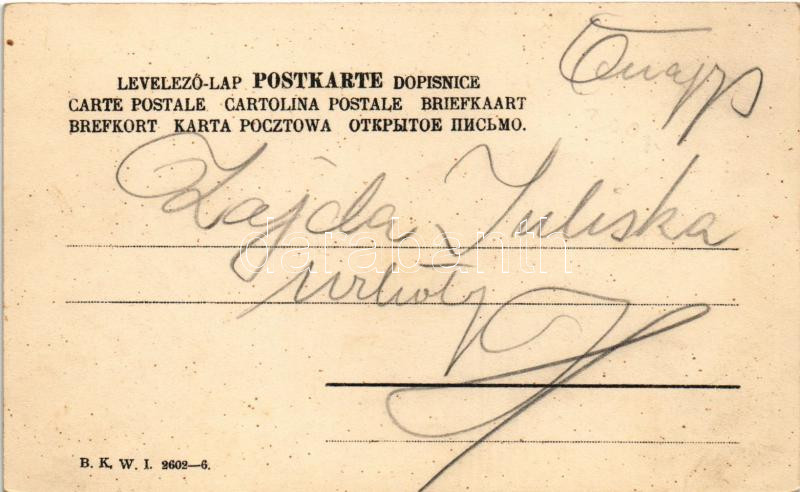 LEVELEZŐ-LAP POSTKARTE DOPISNICE
CARTE POSTALE CARTOLINA POSTALE BRIEFKAART
BREFKORT KARTA POCZTOWA ОТКРЫТОЕ ПИСЬМО.
Zajda Juliska
darabanth
B. K. W. I. 2602—6.